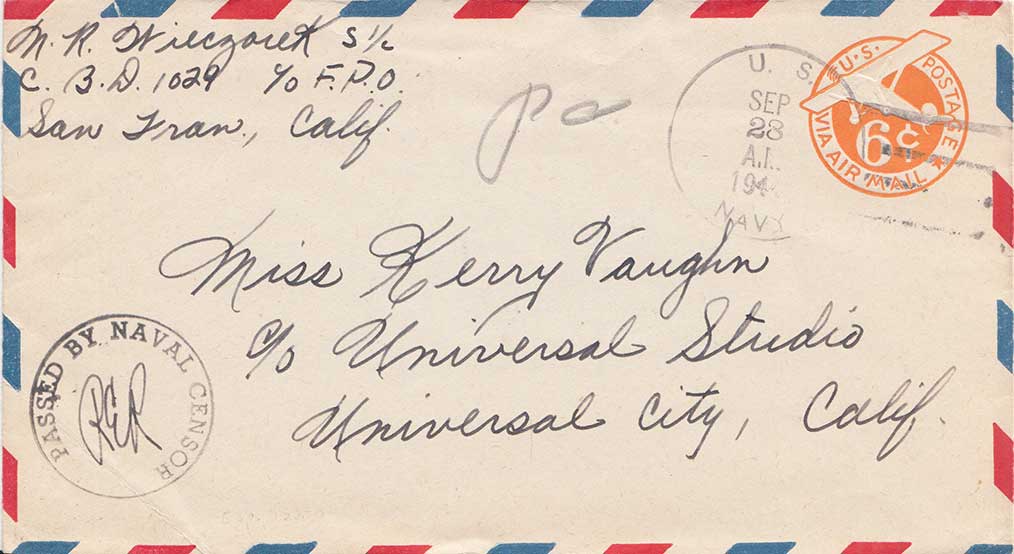 M. R. Wieczorek S 1/c
C. B. D. 1029 c/o F.P.O.
San Fran., Calif.
U. S.
SEP
28
A.M.
194
NAVY
U.S. POSTAGE
6¢
VIA AIR MAIL
Miss Kerry Vaughn
c/o Universal Studio
Universal City, Calif.
PASSED BY NAVAL CENSOR
RER